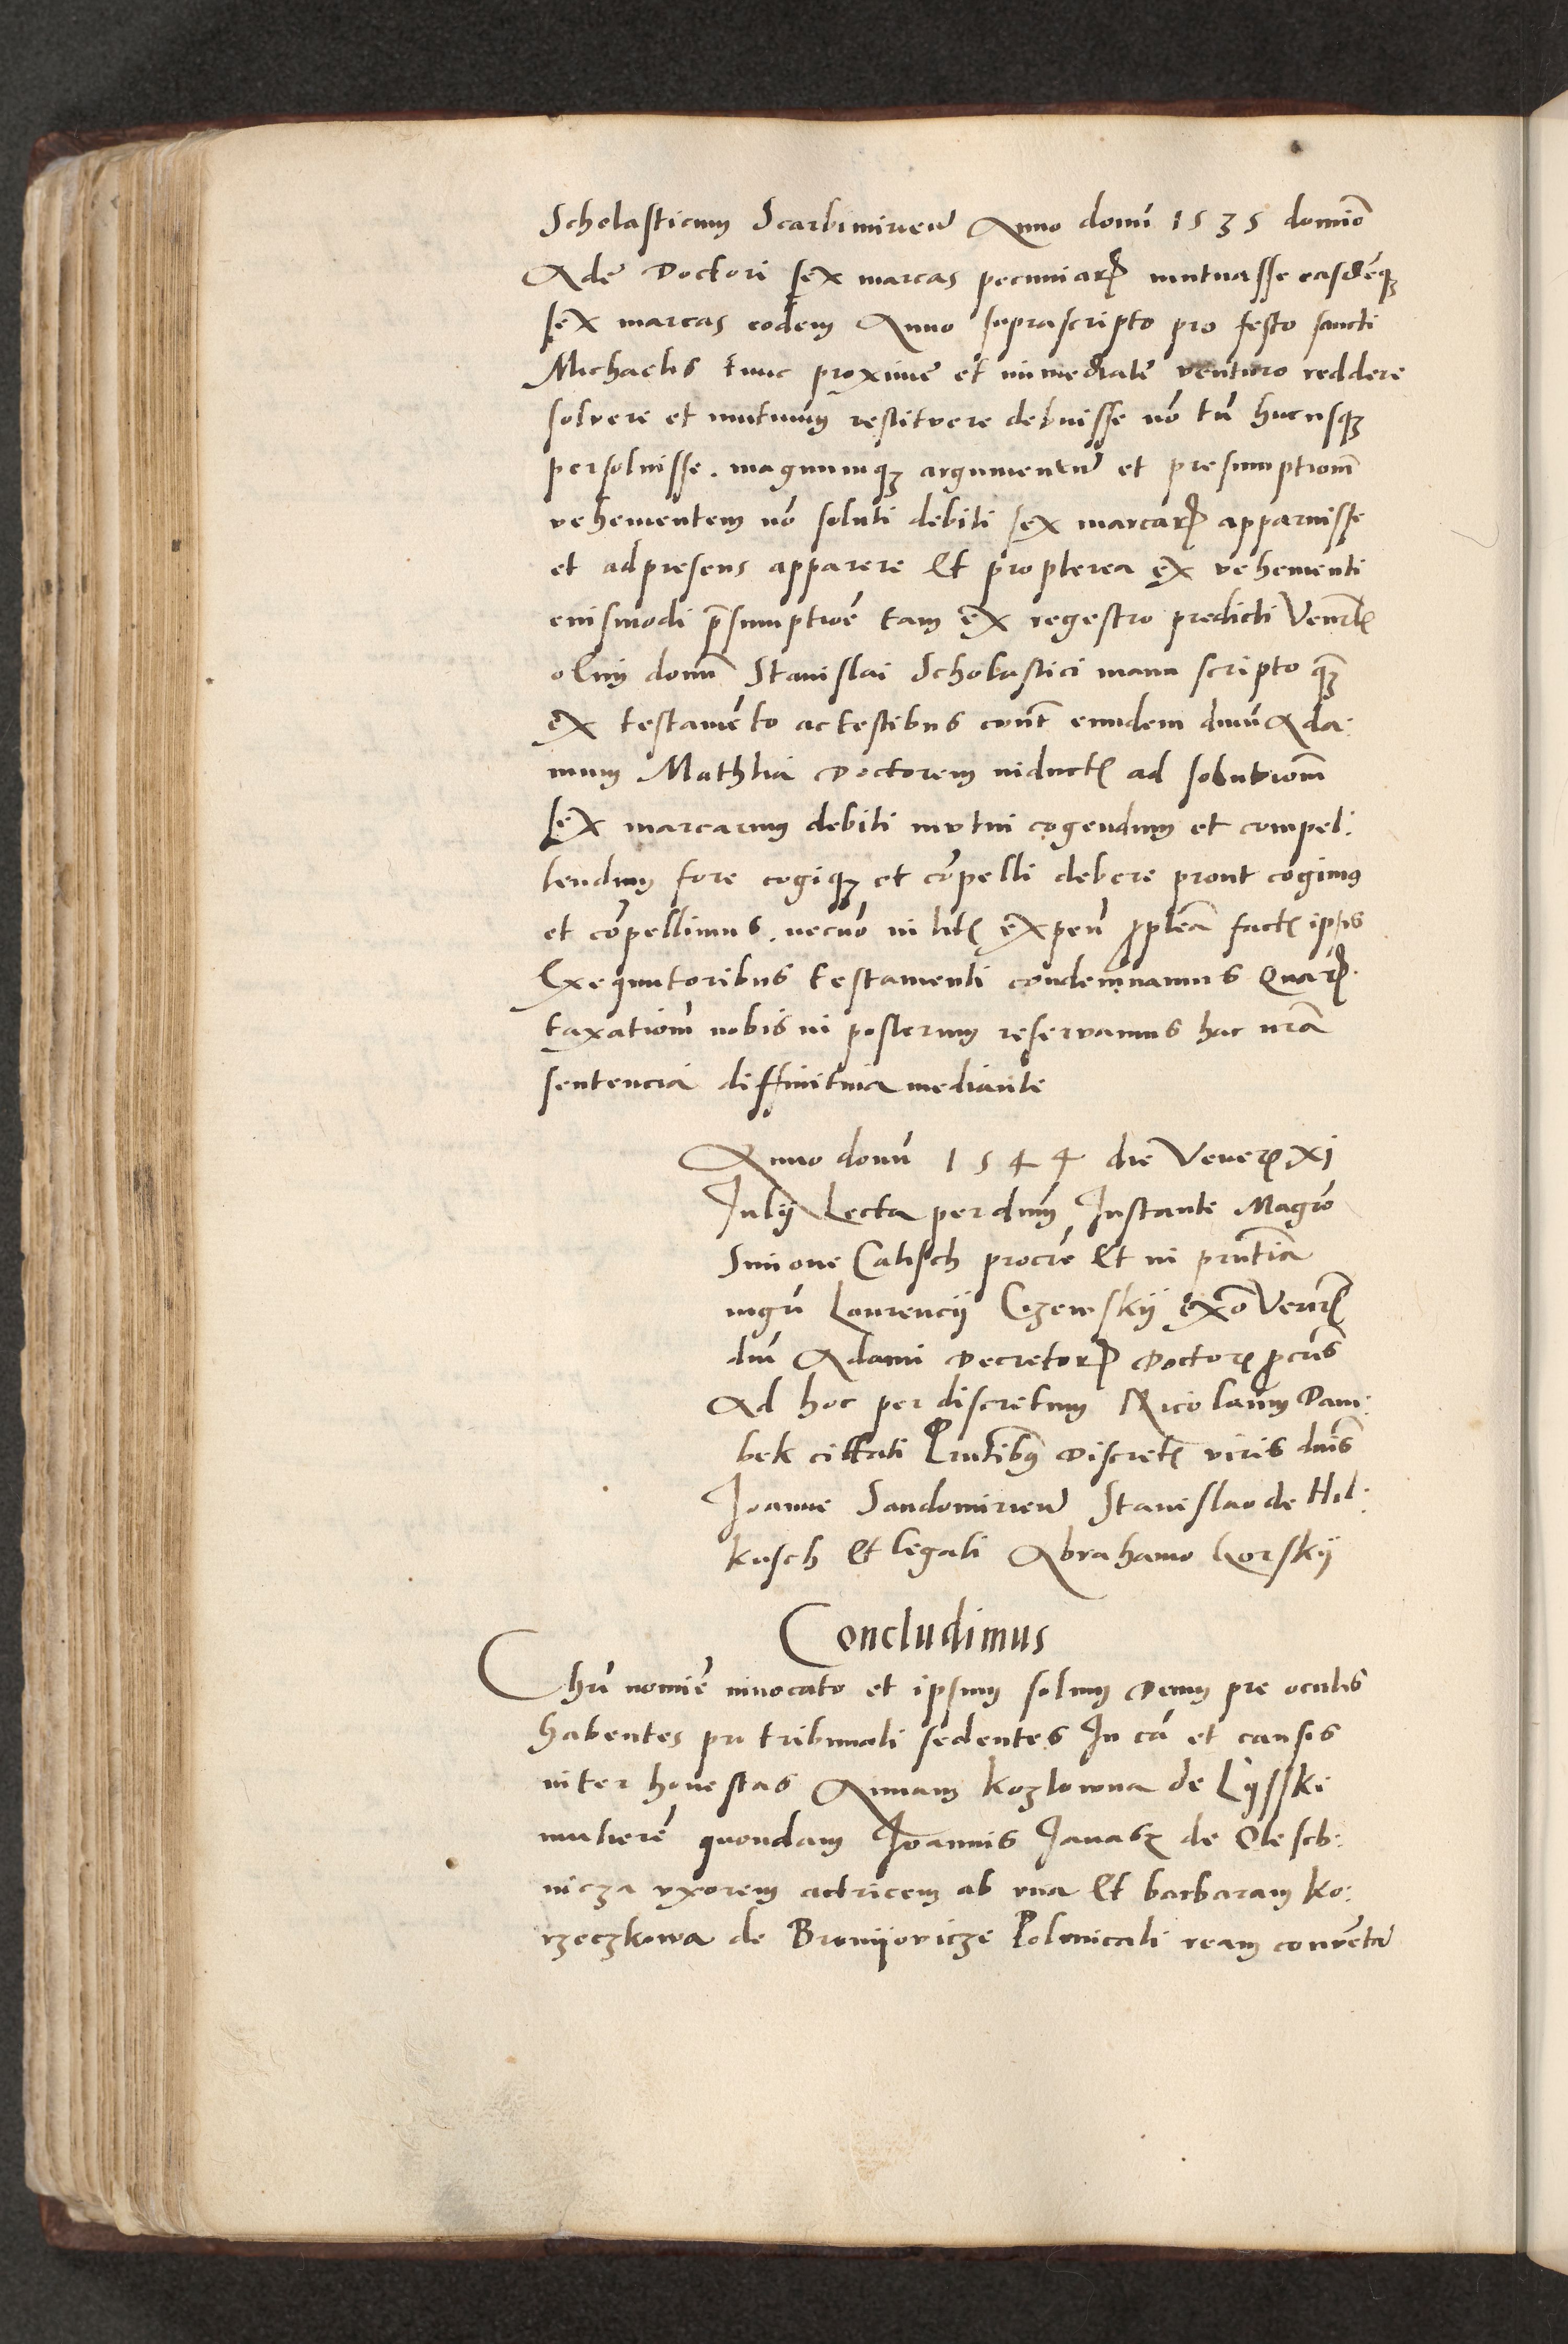 Scholasticum Scarbimirien̄ Anno domī 1535 domīo
Adē Doctori sex marcas pecuniarꝝ mutuasse easdēqꝫ
sex marcas eodem Anno suprascripto pro festo sancti
Michaelis tunc proxime et immediate venturo reddere
solvere et mutuum restituere debuisse nō tn̄ hucusqꝫ
persoluisse. magnumqꝫ argumentū et presumptionē
vehementem nō soluti debiti sex marcarꝝ apparuisse
et ad presens apparere Et propterea ex vehementi
eiusmodi p̄sumptiōe tam ex regestro predicti Venrl̄
olim domī Stanislai Scholastici manu scripto qꝫ
ex testamēto ac testibus cont̄ eundem dnū Ada:
mum Mathia Doctorem inductꝭ ad solutionē
sex marcarum debiti mutui cogendum et compel:
lendum fore cogiqꝫ et cōpelli debere prout cogimus
et cōpellimus. necnō in litꝭ expen̄ ꝓpterea factꝭ ipsis
Exequutoribus testamenti condemnamus Quarꝝ
taxationē nobis in posterum reservamus hac nr̄a
sentencia diffinitiua mediante
Anno domī 1544 die Venerꝭ xj
Julij Lecta per dnū Instante Magr̄o
Simone Calisch procre Et in pn̄tia
mgr̄i Laurencij Czewskij exō Venrl̄
dni Adami Decretorꝝ Doctorꝭ ꝓcris
Ad hoc per discretum Nicolaum Dam:
bek cittati Pn̄tibꝰ Discretꝭ viris dnis
Joanne Sandomirien̄ Stanislao de Hil:
kusch Et legali Abrahamo Gorskij
Concludimus
Chrī nomīe invocato et ipsum solum Deum pre oculis
habentes pro tribunali sedentes In cā et causis
inter honestas Annam Kozlowna de Lysski
mulierē quondam Joannis Janasꝫ de Olesch:
nicza uxorem actricem ab una Et barbaram Ko:
rzeczkowa de Bronijovicze Polonicali ream conventā